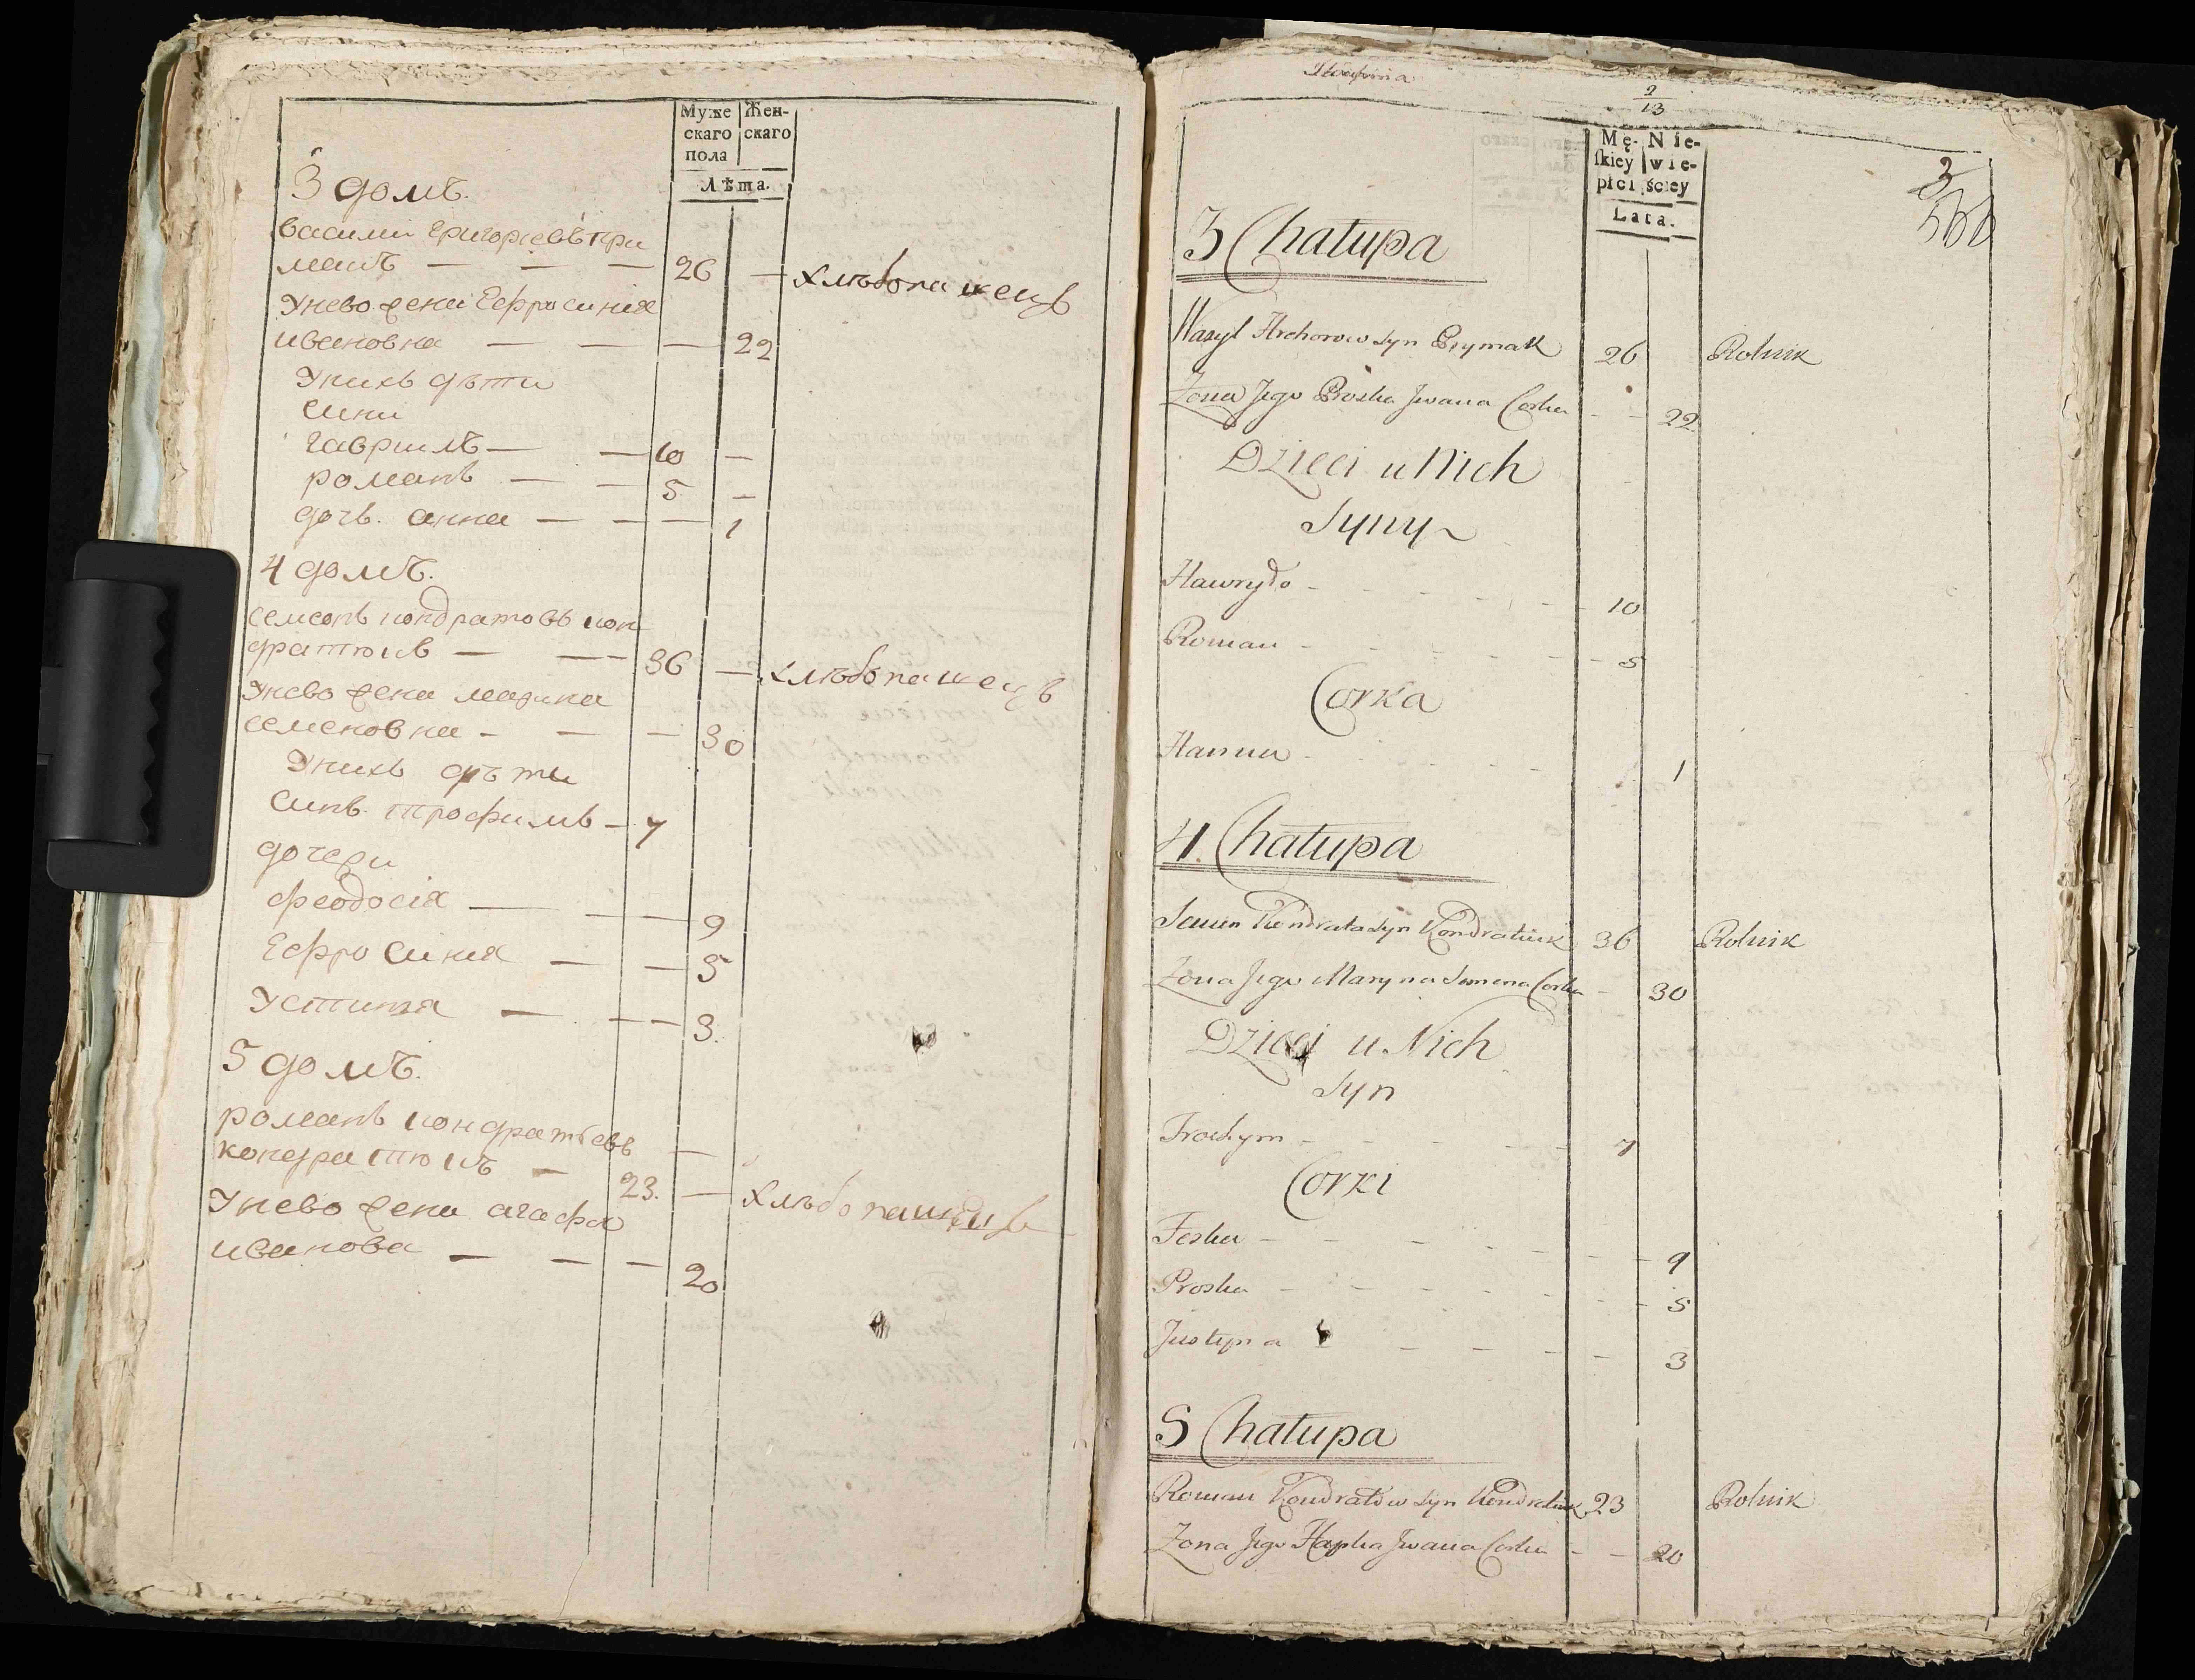 Муже
скаго
пола
Жен-
скаго
Лѣта.
3 домъ.
василий григориевъ при
макъ — — — 26 — хлѣбопашецъ
Унево жена Ефросиния
ивановна — — — 22
Унихъ дѣти
сини
гаврилъ — — 10 —
романъ — — 5 —
дочь. анна — — — 1
4 домъ.
семенъ кондратовъ кон
дратюкъ — — 36 — хлѣбопашецъ
Унево жена марина
семеновна — — — 30
Унихъ дѣти
синъ. трофимъ — 7
дочери
феодосия — — — 9
Ефросиния — — 5
Устиния — — — 3.
5 домъ.
романъ кондратьевъ —
кондратюкъ — 23. — хлѣбопашецъ
Унево жена агафия
иванова — — — 20
2
13
Mę-
skiey
płci
Nie-
wie-
ściey
Lata.
3
3 Chałupa
Wasyl Hrehorow syn Prymak 26 Rolnik
Zona Jego Proska Jwana Corka - - 22
Dzieci u Nich
Syny
Hawryło - - - - - - 10
Roman - - - - - - 5
Corka
Hanna - - - - - 1
4 Chałupa
Semen Kondrata syn Kondratiuk 36 Rolnik
Zona Jego Maryna Semena Corka - 30
Dzieci u Nich
Syn
Trochym - - - - - 7
Corki
Feska - - - - - - - 9
Proska - - - - - - - 5
Justyna - - - - - 3
5 Chałupa
Roman Kondratow syn Kondratiuk 23 Rolnik
Zona Jego Hapka Jwana Corka - - 20